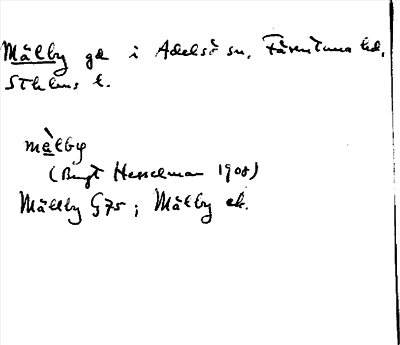 Mälby gd i Adelsö sn, Färentuna hd,
Sthlms l.
màlby
(Bengt Hesselman 1908)
Mällby G75; Mälby ek.